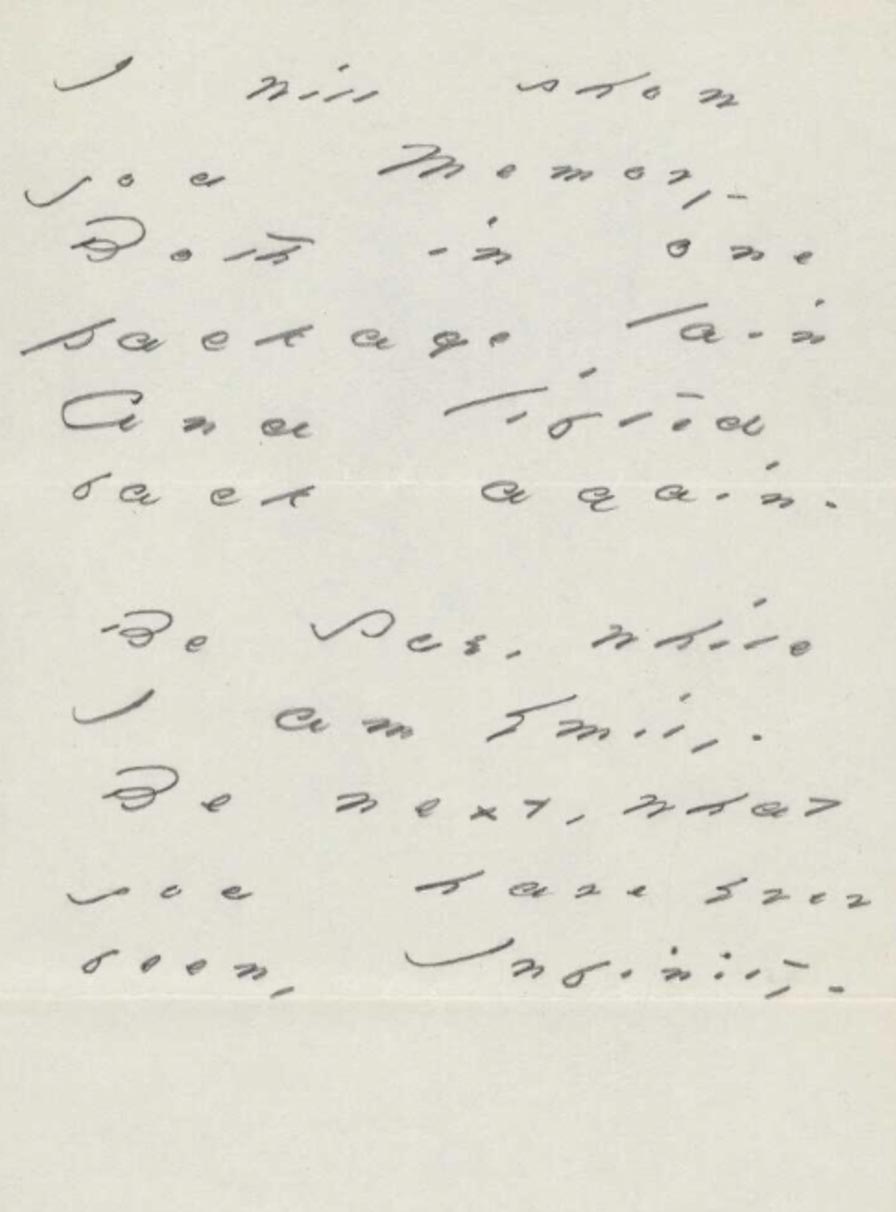 I will show
you Memory –
Both in one
package lain
And lifted
back again –
Be Sue, while
I am Emily –
Be next, what
you have ever
been, Infinity –